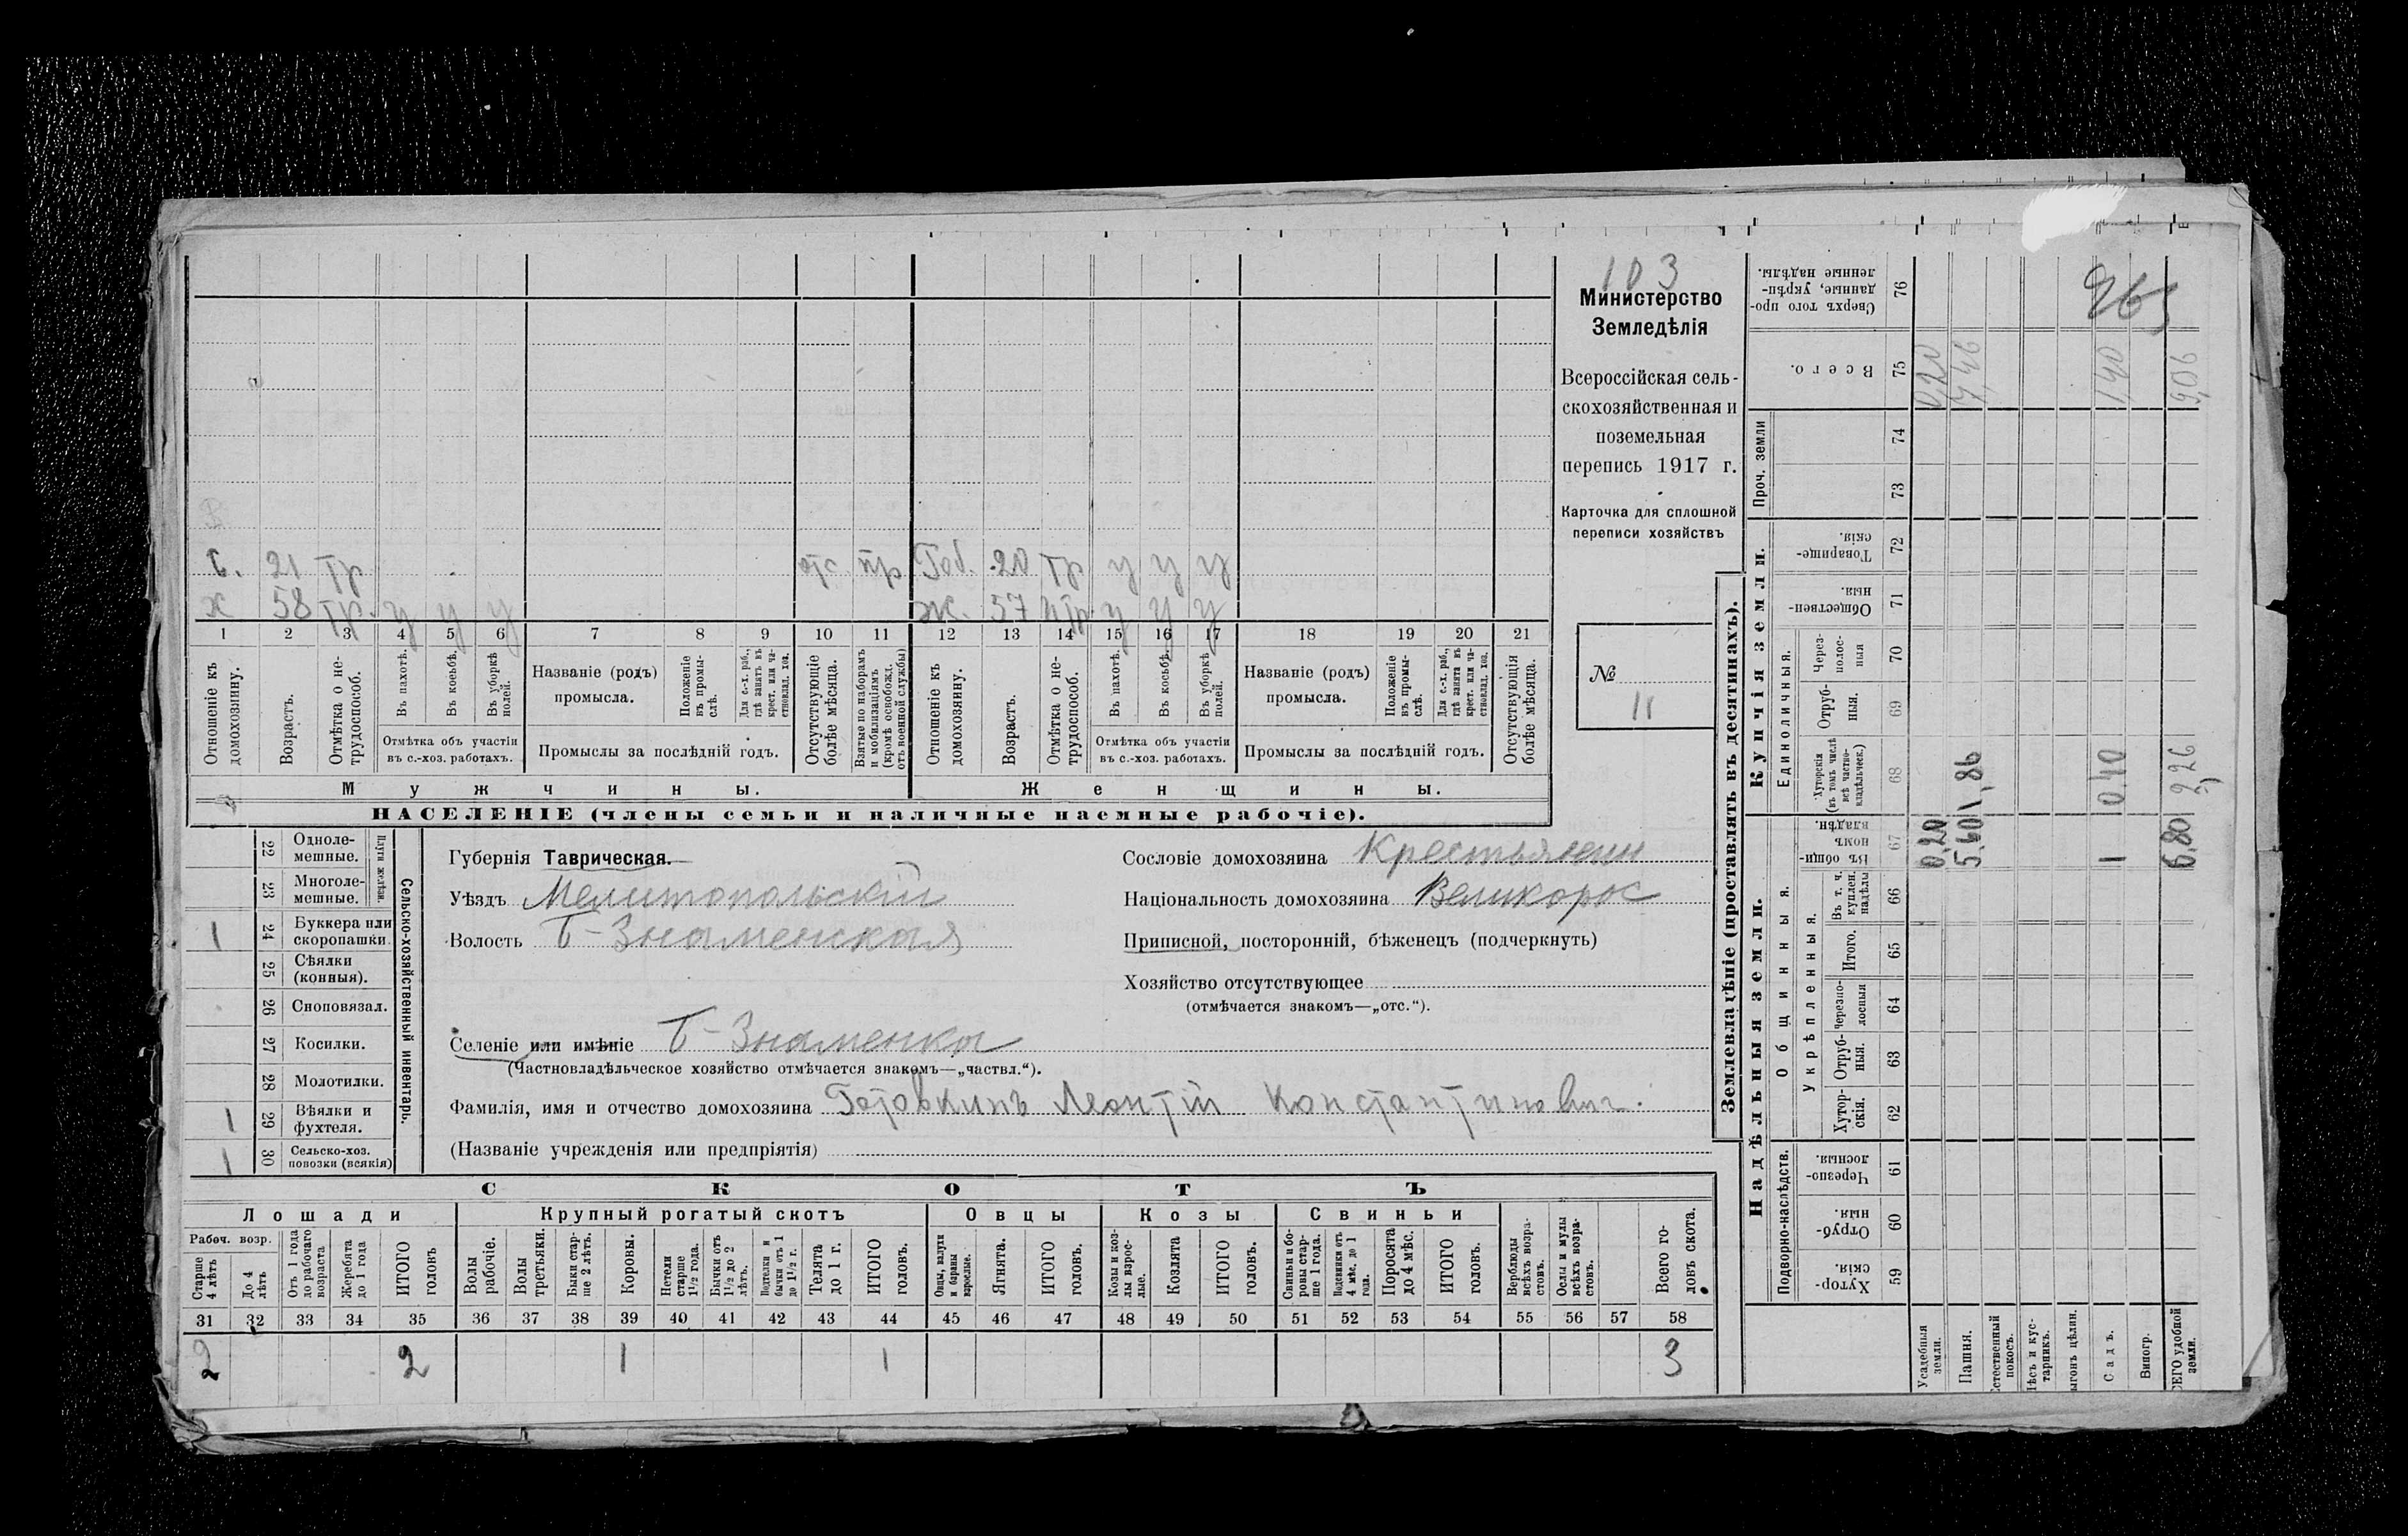 103
Министерство
Земледѣлія
Всероссійская сель-
скохозяйственная и
поземельная
перепись 1917 г.
Карточка для сплошной
переписи хозяйствъ
№
11
с. 21 тр отс. пр. 20 тр у у у
х 58 тр. у у у ж. 57 нтр. у у у
1 2 3 4 5 6 7 8 9 10 11 12 13 14 15 16 17 18 19 20 21
Отношеніе къ домохозяину.
Возрастъ.
Отмѣтка о не-трудоспособ.
Въ пахотѣ.
Въ косьбѣ.
Въ уборкѣ полей.
Отмѣтка объ участіи
въ с.-хоз. работахъ.
Названіе (родъ)
промысла.
Положеніе въ промы-слѣ.
Для с.-х. раб., гдѣ занятъ въ крест. или ча-стновлад. хоз.
Промыслы за послѣдній годъ.
Отсутствующіе болѣе мѣсяца.
Взятые по наборамъ и мобилизаціямъ (кромѣ освобожд. отъ военной службы)
Отношеніе къ домохозяину.
Возрастъ.
Отмѣтка о не-трудоспособ.
Въ пахотѣ.
Въ косьбѣ.
Въ уборкѣ полей.
Отмѣтка объ участіи
въ с.-хоз. работахъ.
Названіе (родъ)
промысла.
Положеніе въ промы-слѣ.
Для с.-х. раб., гдѣ занята въ крест. или ча-стновлад. хоз.
Промыслы за послѣдній годъ.
Отсутствующія болѣе мѣсяца.
Мужчины.
Женщины.
НАСЕЛЕНІЕ (члены семьи и наличные наемные рабочіе).
Сельско-хозяйственный инвентарь.
Плуги желѣзн.
22 Одноле-мешные.
23 Многоле-мешные.
1 24 Буккера или скоропашки.
25 Сѣялки (конныя).
26 Сноповязал.
27 Косилки.
28 Молотилки.
1 29 Вѣялки и фухтеля.
1 30 Сельско-хоз. повозки (всякія)
Губернія Таврическая.
Уѣздъ Мелитопольскій
Волость Б-Знаменская
Селеніе или имѣніе Б-Знаменка
(Частновладѣльческое хозяйство отмѣчается знакомъ—„частвл.“).
Фамилія, имя и отчество домохозяина Готовкинъ Леонтій Константинович.
(Названіе учрежденія или предпріятія)
Сословіе домохозяина Крестьянин
Національность домохозяина Великорос
Приписной, посторонній, бѣженецъ (подчеркнуть)
Хозяйство отсутствующее
(отмѣчается знакомъ—„отс.“).
СКОТЪ
Лошади
Крупный рогатый скотъ
Овцы
Козы
Свиньи
Рабоч. возр.
Старше 4 лѣтъ
До 4 лѣтъ
Отъ 1 года до рабочаго возраста
Жеребята до 1 года
ИТОГО головъ
Волы рабочіе.
Волы третьяки.
Быки стар-ше 2 лѣтъ.
Коровы.
Нетели старше 1½ года.
Бычки отъ 1½ до 2 лѣтъ.
Подтелки и бычки отъ 1 до 1½ г.
Телята до 1 г.
ИТОГО головъ.
Овцы, валухи и бараны взрослые.
Ягнята.
ИТОГО головъ.
Козы и коз-лы взрос-лые.
Козлята
ИТОГО головъ.
Свиньи и бо-ровы стар-ше 1 года.
Подсвинки отъ 4 мѣс. до 1 года.
Поросята до 4 мѣс.
ИТОГО головъ.
Верблюды всѣхъ возра-стовъ.
Ослы и мулы всѣхъ возра-стовъ.
Всего го-ловъ скота.
31 32 33 34 35 36 37 38 39 40 41 42 43 44 45 46 47 48 49 50 51 52 53 54 55 56 57 58
2 2 1 1 3
Землевладѣніе (проставлять въ десятинахъ).
Надѣльныя земли.
Купчія земли.
Проч. земли
Подворно-наслѣдств.
Общинныя.
Укрѣпленныя.
Единоличныя.
Хутор-скія. 59
Отруб-ныя. 60
Черезпо-лосныя. 61
Хутор-скія. 62
Отруб-ныя. 63
Черезпо-лосныя 64
Итого. 65
Въ т. ч. куплен. надѣлы 66
Въ общи-номъ владѣн. 67
Хуторскія (въ томъ числѣ всѣ частно-владѣльческ.) 68
Отруб-ныя. 69
Через-полос-ныя 70
Обществен-ныя. 71
Товарище-скія. 72
73
74
Всего. 75
Сверхъ того про-данные, укрѣп-ленные надѣлы. 76
265
Усадебныя земли. 0,20 0,20
Пашня. 5,60 1,86 7,46
Естественный покосъ.
Лѣсъ и кус-тарникъ.
Выгонъ цѣлин.
Садъ. 1 0,40 1,40
Виногр.
ВСЕГО удобной земли. 6,80 2,26 9,06